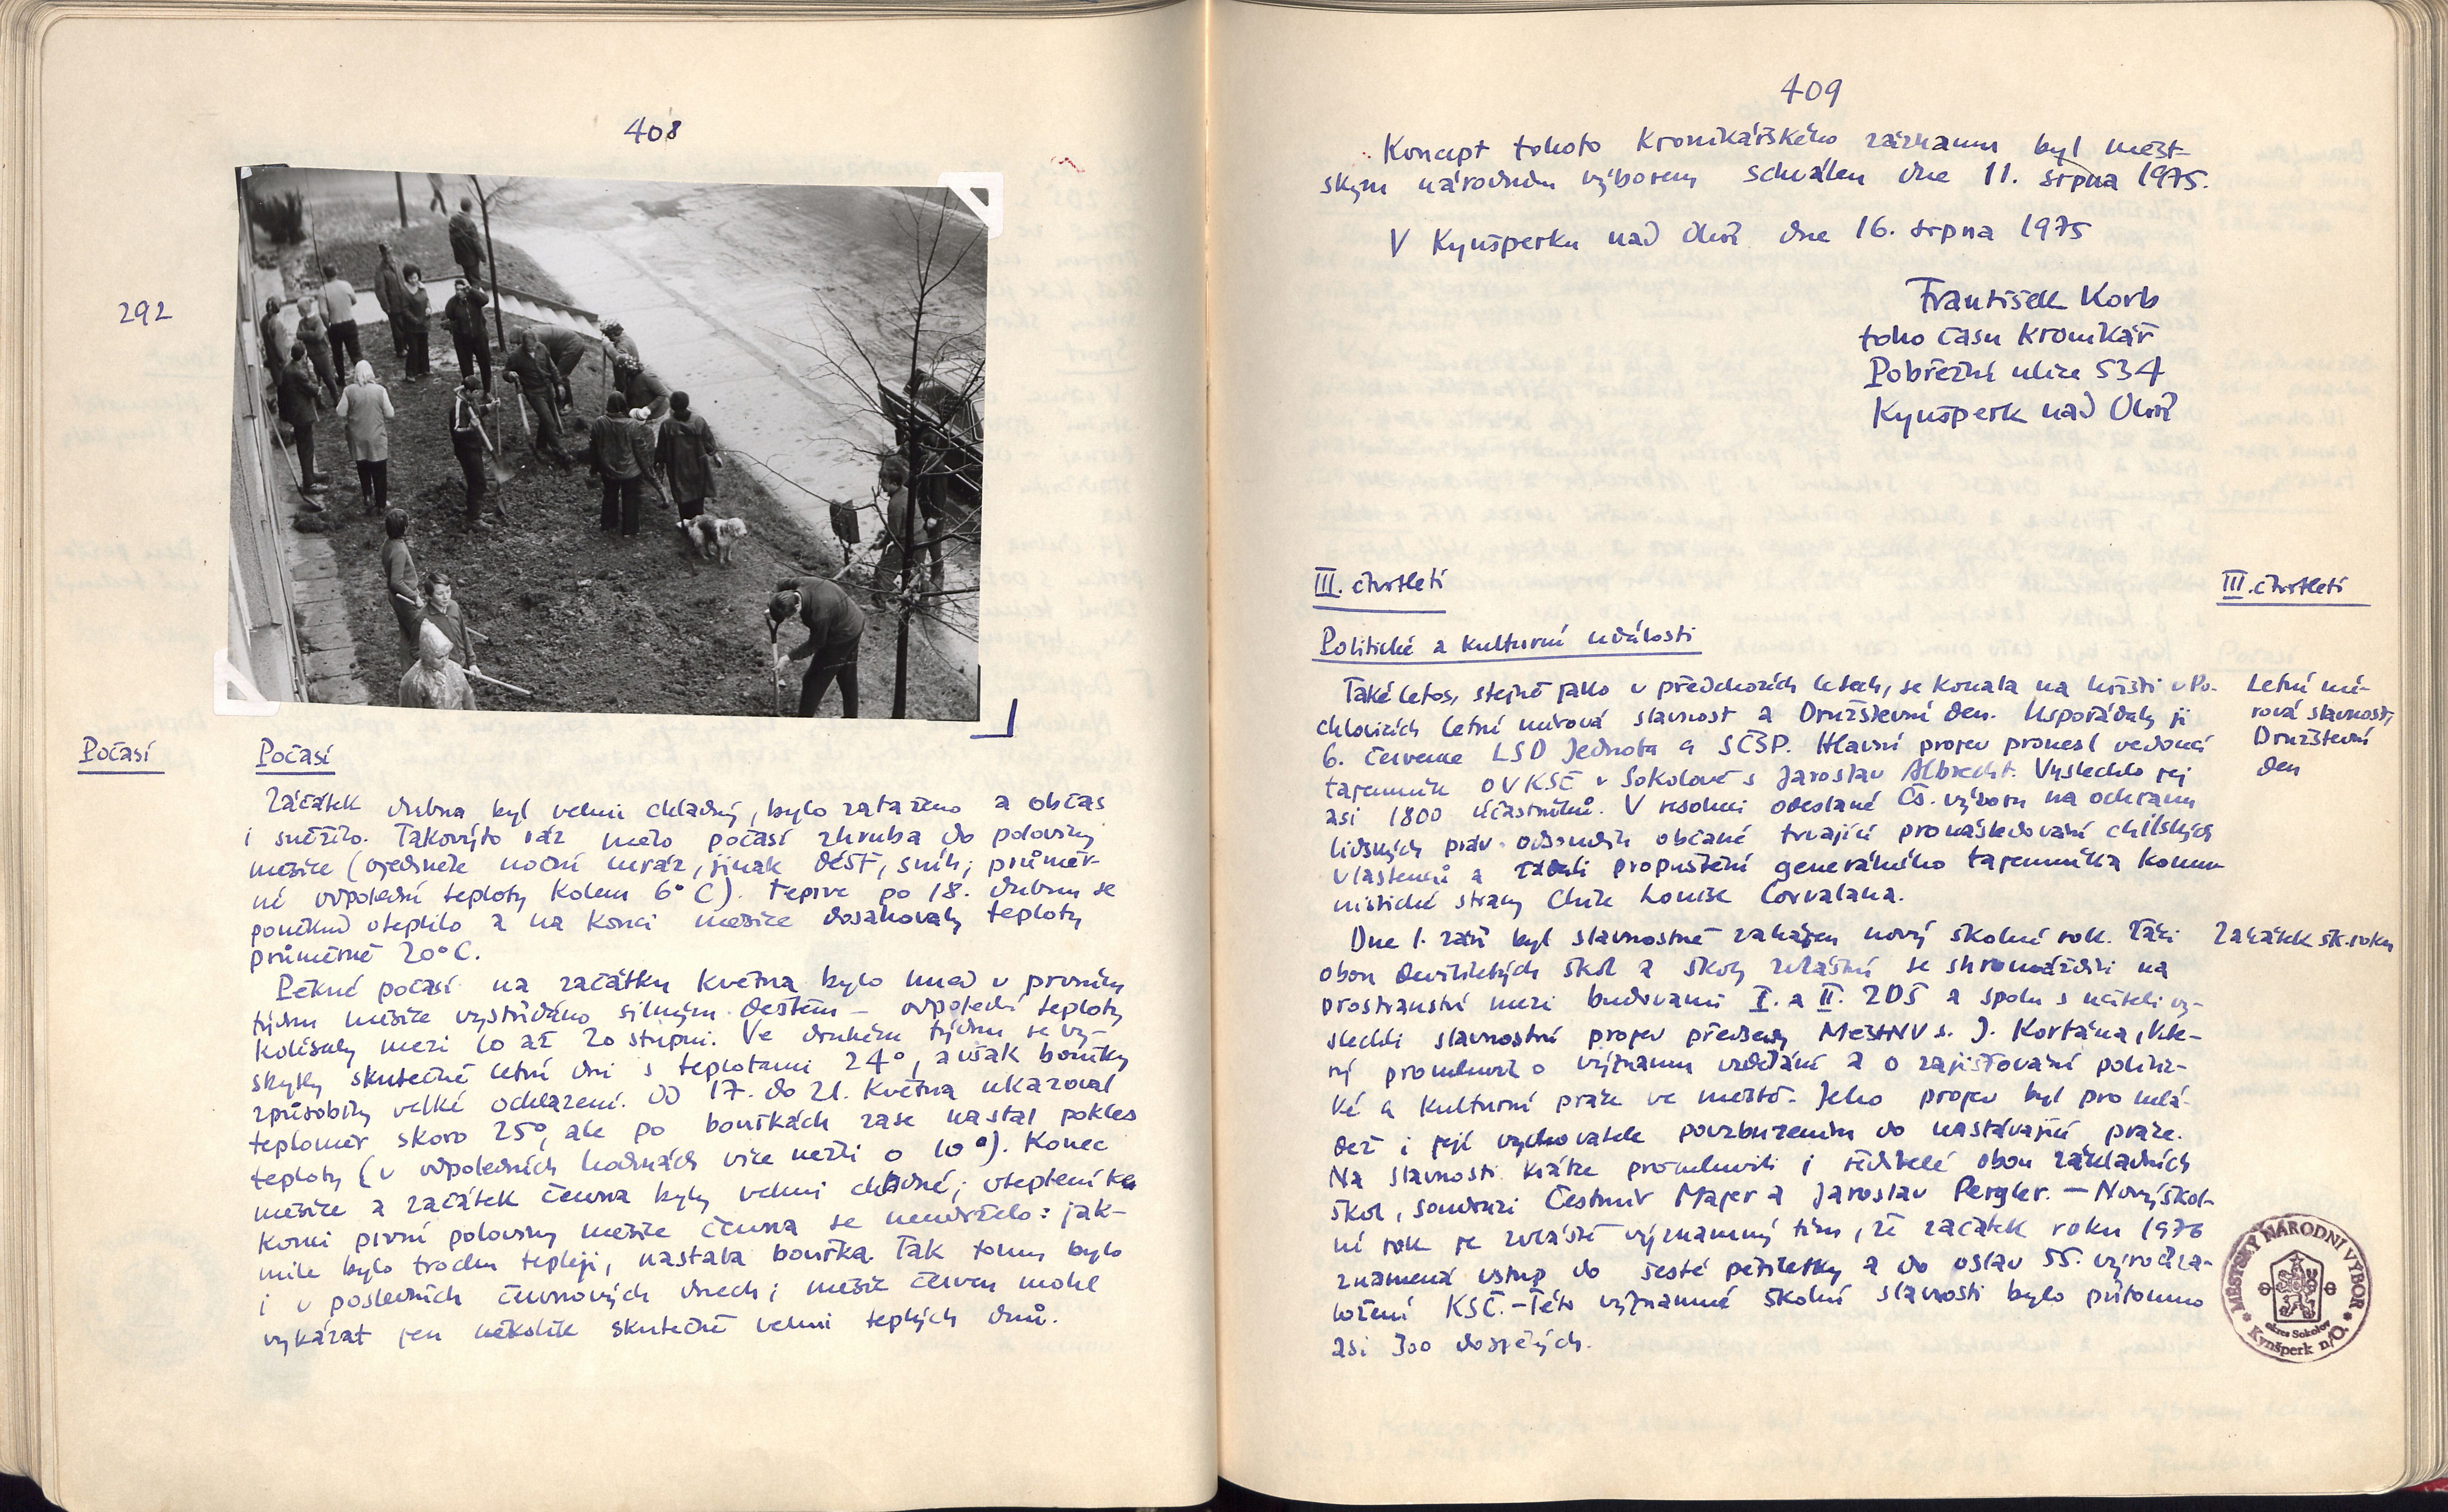 408
292
Počasí
Počasí
Začátek dubna byl velmi chladný, bylo zataženo a občas
i sněžilo. Takovýto ráz mělo počasí zhruba do poloviny
měsíce (ojediněle noční mráz, jinak déšť, sníh; průměr-
né odpolední teploty kolem 6° C). Teprve po 18. dubnu se
poněkud oteplilo a na konci měsíce dosahovaly teploty
průměrně 20° C.
Pěkné počasí na začátku května bylo hned v prvním
týdnu měsíce vystřídáno silným deštěm – odpolední teploty
kolísaly mezi 10 až 20 stupni. Ve druhém týdnu se vy-
skytly skutečně letní dni s teplotami 24°, avšak bouřky
způsobily velké ochlazení. Od 17. do 21. května ukazoval
teploměr skoro 25°, ale po bouřkách zase nastal pokles
teploty (v odpoledních hodinách více nežli o 10°). Konec
měsíce a začátek června byly velmi chladné; oteplení ke
konci první poloviny měsíce června se neudrželo: jak-
mile bylo trochu tepleji, nastala bouřka. Tak tomu bylo
i v posledních červnových dnech; měsíc červen mohl
vykázat jen několik skutečně velmi teplých dnů.
409
Koncept tohoto kronikářského záznamu byl měst-
ským národním výborem schválen dne 11. srpna 1975.
V Kynšperku nad Ohří dne 16. srpna 1975
František Korb
toho času kronikář
Pobřežní ulice 534
Kynšperk nad Ohří
III. čtvrtletí
III. čtvrtletí
Politické a kulturní události
Také letos, stejně jako v předchozích letech, se konala na hřišti v Po-
chlovicích letní mírová slavnost a Družstevní den. Uspořádaly ji
6. července LSD Jednota a SČSP. Hlavní projev pronesl vedoucí
tajemník OVKSČ v Sokolově s. Jaroslav Albrecht. Vyslechlo jej
asi 1800 účastníků. V resoluci odeslané Čs. výboru na ochranu
lidských práv odsoudili občané trvající pronásledování chilských
vlastenců a žádali propuštění generálního tajemníka Komu-
nistické strany Chile Louise Corvalana.
Letní mí-
rová slavnost,
Družstevní
den
Dne 1. září byl slavnostně zahájen nový školní rok. Žáci
obou devítiletých škol a školy zvláštní se shromáždili na
prostranství mezi budovami I. a II. ZDŠ a spolu s učiteli vy-
slechli slavnostní projev předsedy MěstNV s. J. Kortána, kte-
rý promluvil o významu vzdělání a o zajišťování politic-
ké a kulturní práce ve městě. Jeho projev byl pro mlá-
dež i její vychovatele povzbuzením do nastávající práce.
Na slavnosti krátce promluvili i ředitelé obou základních
škol, soudruzi Čestmír Majer a Jaroslav Pergler. – Nový škol-
ní rok je zvláště významný tím, že začátek roku 1976
znamená vstup do šesté pětiletky a do oslav 55. výročí za-
ložení KSČ. – Této významné školní slavnosti bylo přítomno
asi 300 dospělých.
Začátek šk. roku
MĚSTSKÝ NÁRODNÍ VÝBOR
okres Sokolov
Kynšperk n/O.